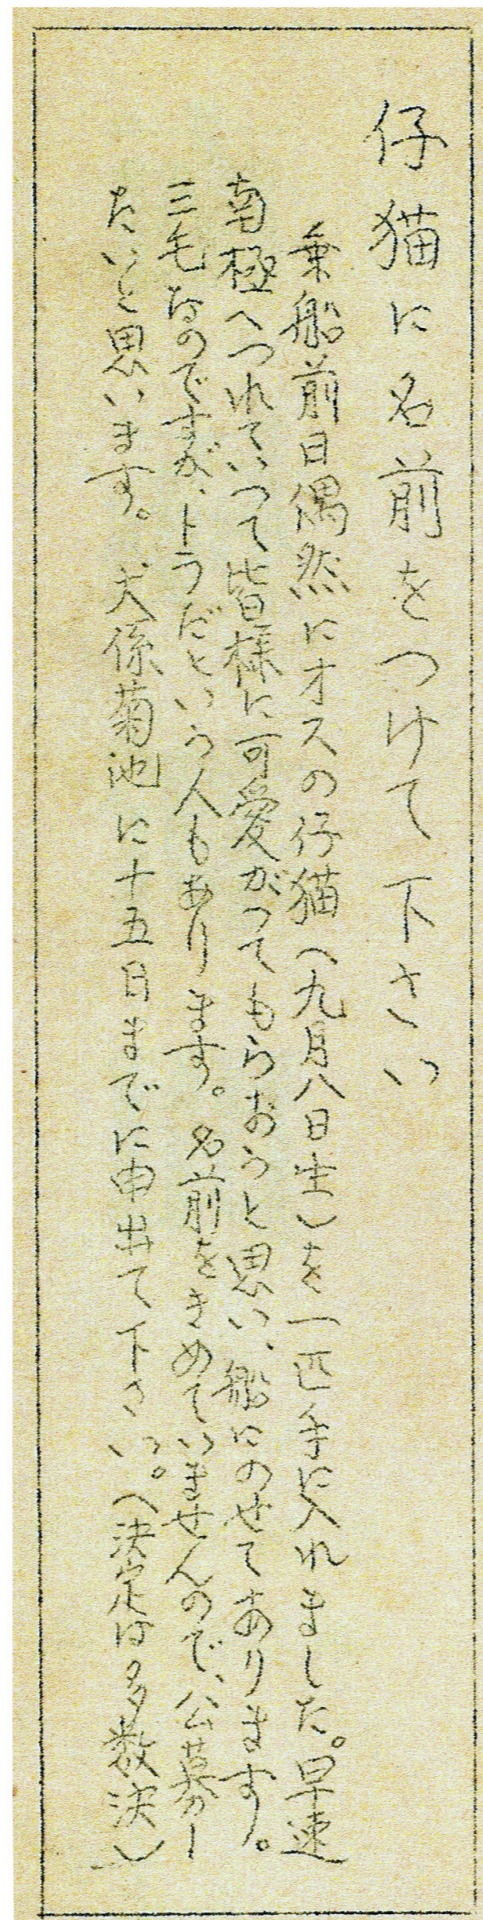 仔猫に名前をつけて下さい
乗船前日偶然にオスの仔猫(九月八日生)を一匹手に入れました。早速
南極へつれていつて皆様に可愛がつてもらおうと思い、船にのせてあります。
三毛なのですが、トラだという人もあります。名前をきめていませんので、公募し
たいと思います。犬係菊池に十五日までに申出て下さい。(決定は多数決)